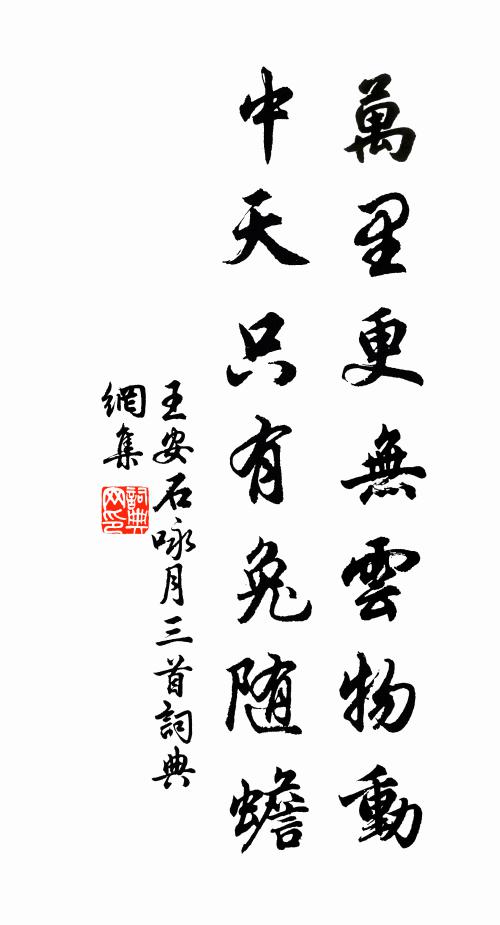 萬里更無雲物動
中天只有兔隨蟾
王安石咏月三首詞典
網集
詞典網印